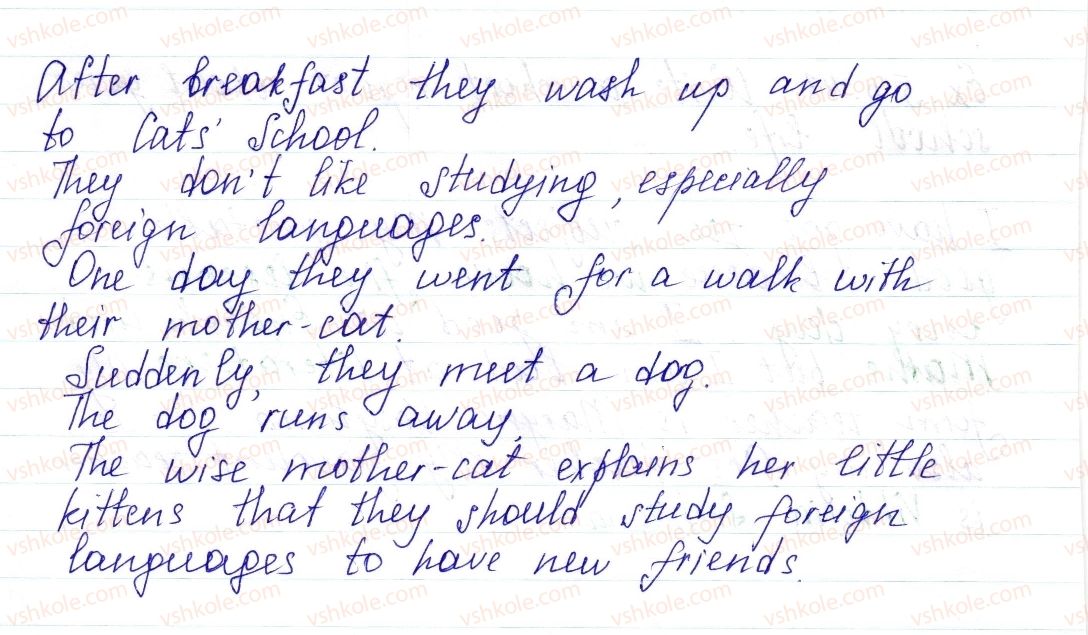 After breakfast they wash up and go
to Cats' School.
They don't like studying, especially
foreign languages.
One day they went for a walk with
their mother-cat.
Suddenly, they meet a dog.
The dog runs away.
The wise mother-cat explains her little
kittens that they should study foreign
languages to have new friends.